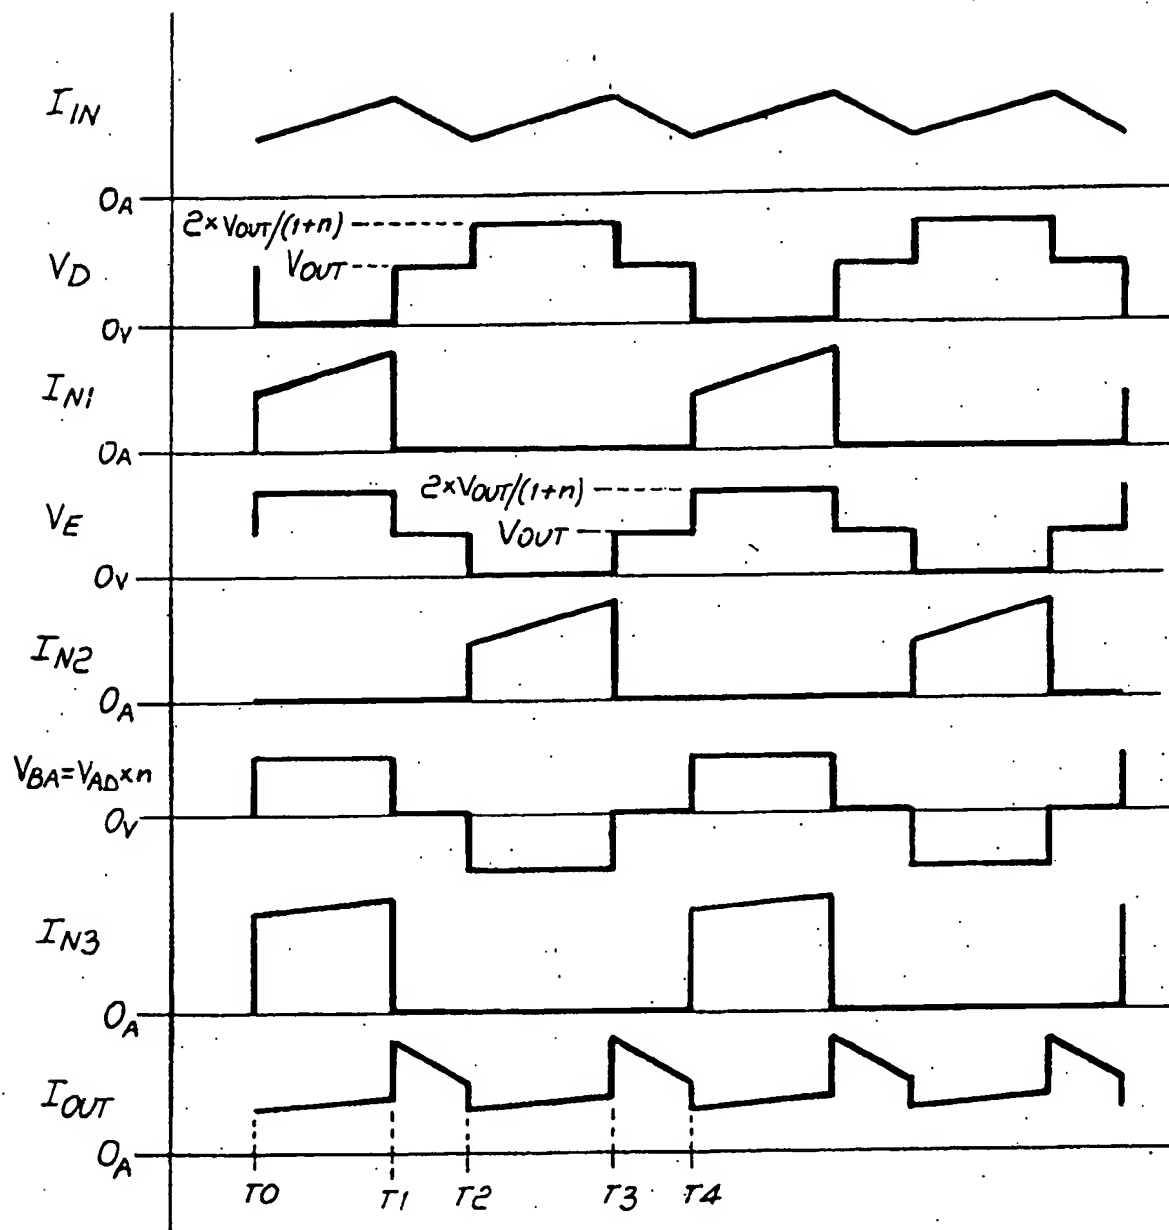 IIN
0A
2×VOUT/(1+n)
VOUT
VD
0V
IN1
0A
2×VOUT/(1+n)
VOUT
VE
0V
IN2
0A
VBA=VAD×n
0V
IN3
0A
IOUT
0A
T0 T1 T2 T3 T4